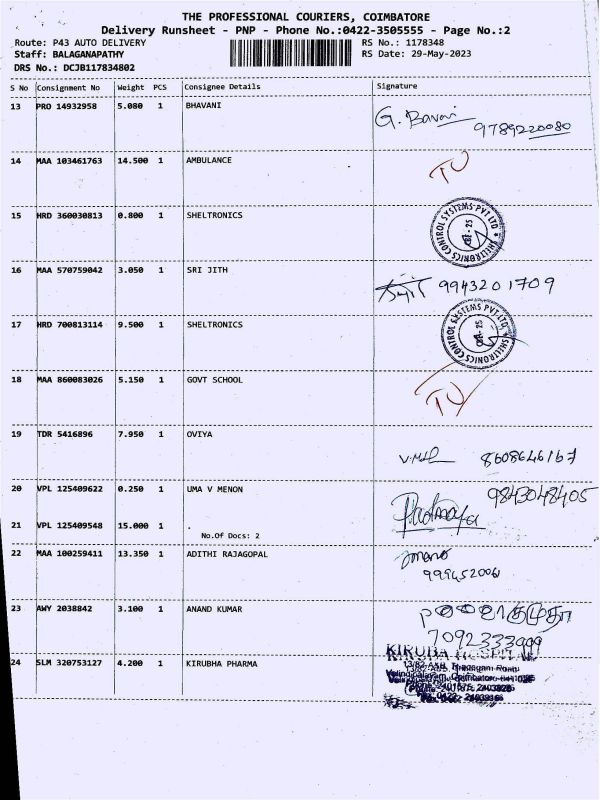 THE PROFESSIONAL COURIERS, COIMBATORE
Delivery Runsheet - PNP - Phone No.:0422-3505555 - Page No.:2
Route: P43 AUTO DELIVERY RS No.: 1178348
Staff: BALAGANAPATHY RS Date: 29-May-2023
DRS No.: DCJB117834802
S No Consignment No Weight PCS Consignee Details Signature
13 PRO 14932958 5.080 1 BHAVANI G. Bavani
9789220080
14 MAA 103461763 14.500 1 AMBULANCE
15 HRD 360030813 0.800 1 SHELTRONICS SHELTRONICS CONTROL SYSTEMS PVT LTD
16 MAA 570759042 3.050 1 SRI JITH 9943201709
17 HRD 700813114 9.500 1 SHELTRONICS SHELTRONICS CONTROL SYSTEMS PVT LTD
18 MAA 860083026 5.150 1 GOVT SCHOOL
19 TDR 5416896 7.950 1 OVIYA 8608646167
20 VPL 125409622 0.250 1 UMA V MENON 9843048405
21 VPL 125409548 15.000 1 .
No.Of Docs: 2
22 MAA 100259411 13.350 1 ADITHI RAJAGOPAL
23 AWY 2038842 3.100 1 ANAND KUMAR
7092333999
KIRUBA HOSPITAL
24 SLM 320753127 4.200 1 KIRUBHA PHARMA